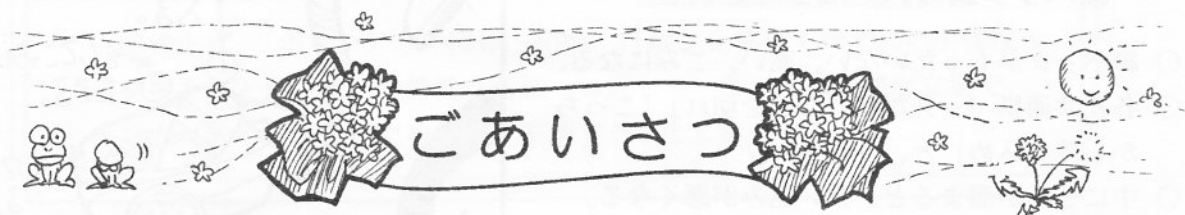 ごあいさつ